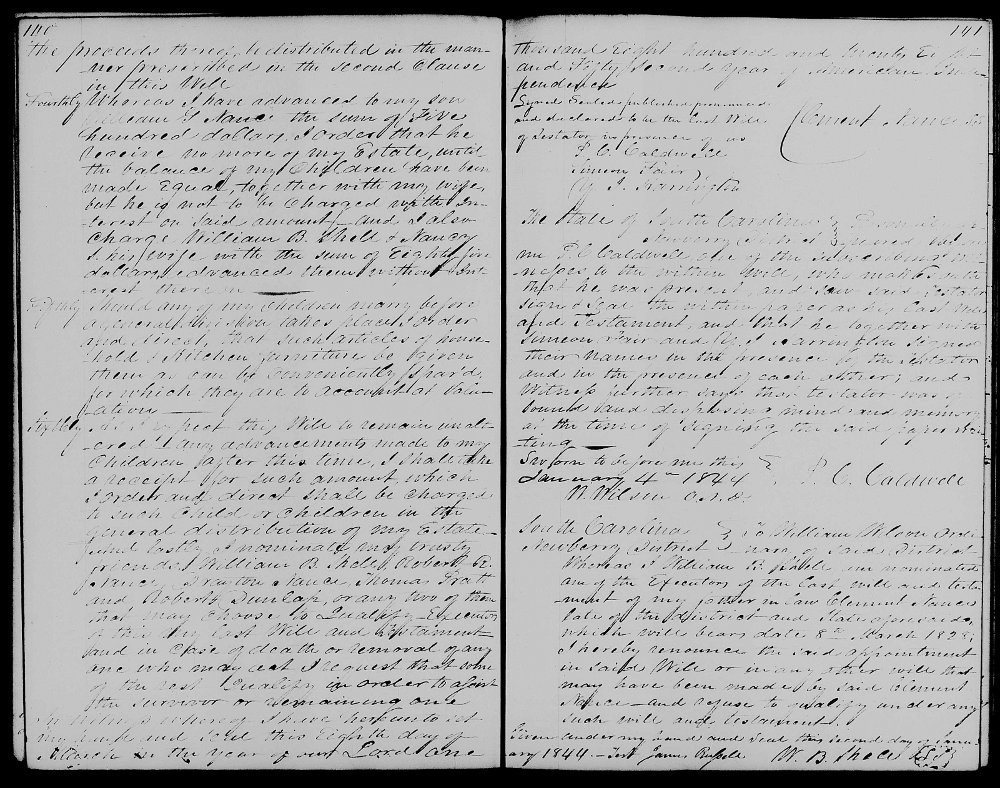 140
the proceeds thereof, be distributed in the man-
ner prescribed in the second Clause
in this Will
Fourthly Whereas I have advanced to my son
William G Nance the sum of Five
hundred dollars, I order that he
receive no more of my Estate, until
the balance of my Children have been
made Equal, together with my wife,
but he is not to be Charged with In-
terest on said amount, and I also
Charge William B. Shell & Nancy
his wife with the sum of Eighty five
dollars advanced them without Int-
erest thereon
Fifthly Should any of my Children marry before
a general division takes place, I order
and direct, that such articles of house-
hold & Kitchen furniture be given
them as can be Conveniently spared,
for which they are to account at valu-
ation
Sixthly As I expect this Will to remain unalt-
ered & any advancements made to my
Children after this time, I shall take
a receipt for such amount, which
I order and direct shall be charged
to such Child or Children in the
general distribution of my Estate
And lastly I nominate my trusty
friends William B Shell, Robert R.
Nance, Drayton Nance, Thomas Pratt
and Robert Dunlap, or any two of them
that may choose to Qualify Executors
of this my last Will and Testament
and in Case of death or removal of any
one who may act I request that some
of the rest Qualify in order to assist
the survivor or remaining one
In testimony whereof I have hereunto set
my hand and seal this Eighth day of
March in the year of our Lord one
141
thousand Eight hundred and twenty Eight
and Fifty Second year of American Inde-
pendence
Signed Sealed published pronounced
and declared to be the last Will
of Testator in presence of us
Clement Nance
P. C. Caldwell
Simeon Fair
Y. J. Harrington
The State of South Carolina
Newberry District Personally appeared before
me P. C. Caldwell, one of the subscribing wit-
nesses to the within Will, who makes oath
that he was present, and saw said Testator
sign & Seal the within paper as his last Will
and Testament, and that he together with
Simeon Fair and Y. J. Harrington Signed
their names in the presence of the Testator
and in the presence of each other; and
Witness further says that testator was of
sound and disposing mind and memory
at the time of signing the said paper wri-
ting
Sworn to before me this
January 4th 1844
P. C. Caldwell
W Wilson O.N.D.
South Carolina
Newberry District To William Wilson Ordi-
nary of said District
Whereas I William B. Shell am nominated
one of the Executors of the last will and testa-
ment of my father in law Clement Nance
late of the district and State aforesaid,
which will bears date 8th March 1828;
I hereby renounce the said appointment
in said Will or in any other will that
may have been made by said Clement
Nance and refuse to qualify under any
such will and testament.
Given under my hand and seal this second day of Janu-
ary 1844 - Test James W. B. Shell